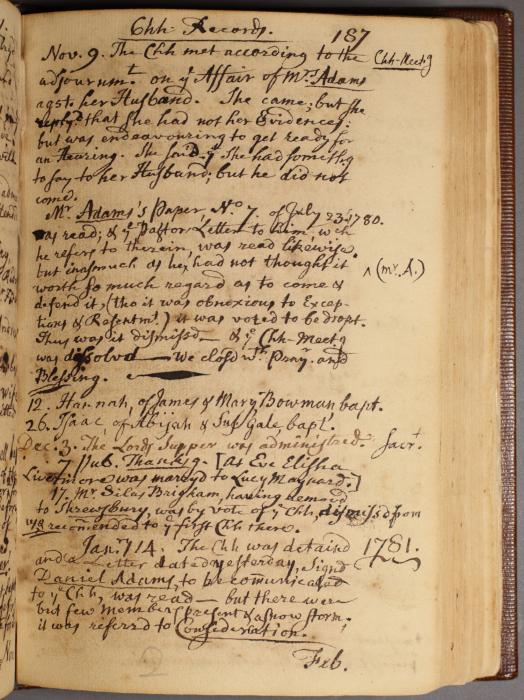 Chh Records. 187
Nov. 9. The Chh met according to the Chh-Meetg
adjournmt. on ye Affair of Mrs Adams
agst her Husband. She came; but she
replyd that she had not her Evidences,
but was endeavouring to get ready for
an Hearing. She said yt She had somethg
to say to her Husband; but he did not
come.
Mr. Adams's Paper, No. 7. of July 23. 1780.
was read; & ye Pastor Letter to him wch
he refers to therein, was read likewise.
but inasmuch as he, had not thought it ^ (mr. A.)
worth so much regard as to come &
defend it, (tho it was obnoxious to Excep-
tions & Resentmt.) it was voted to be dropt.
Thus was it dismissd — & ye Chh-Meetg
was dissolvd — We closd wth Pray. and
Blessing.
12. Hannah, of James & Mary Bowman bapt.
26. Isaac of Abijah & Gale bapt.
Dec. 3. The Lords Supper was administred. Sacrt.
7 Pub. Thanksg. [At Eve Elisha
Livermore was maryd to Lucy Maynard.]
17. Mr. Silas Brigham, having removd
to Shrewsbury, was by vote of ye Chh, dismissd from
us & recommended to ye first Chh there.
Jany. 14. The Chh was detaind 1781.
and a Letter dated yesterday, signd
Daniel Adams, to be comunicated
to ye Chh, was read — but there were
but few members present & a snow storm;
it was referrd to Consideration.
Feb.